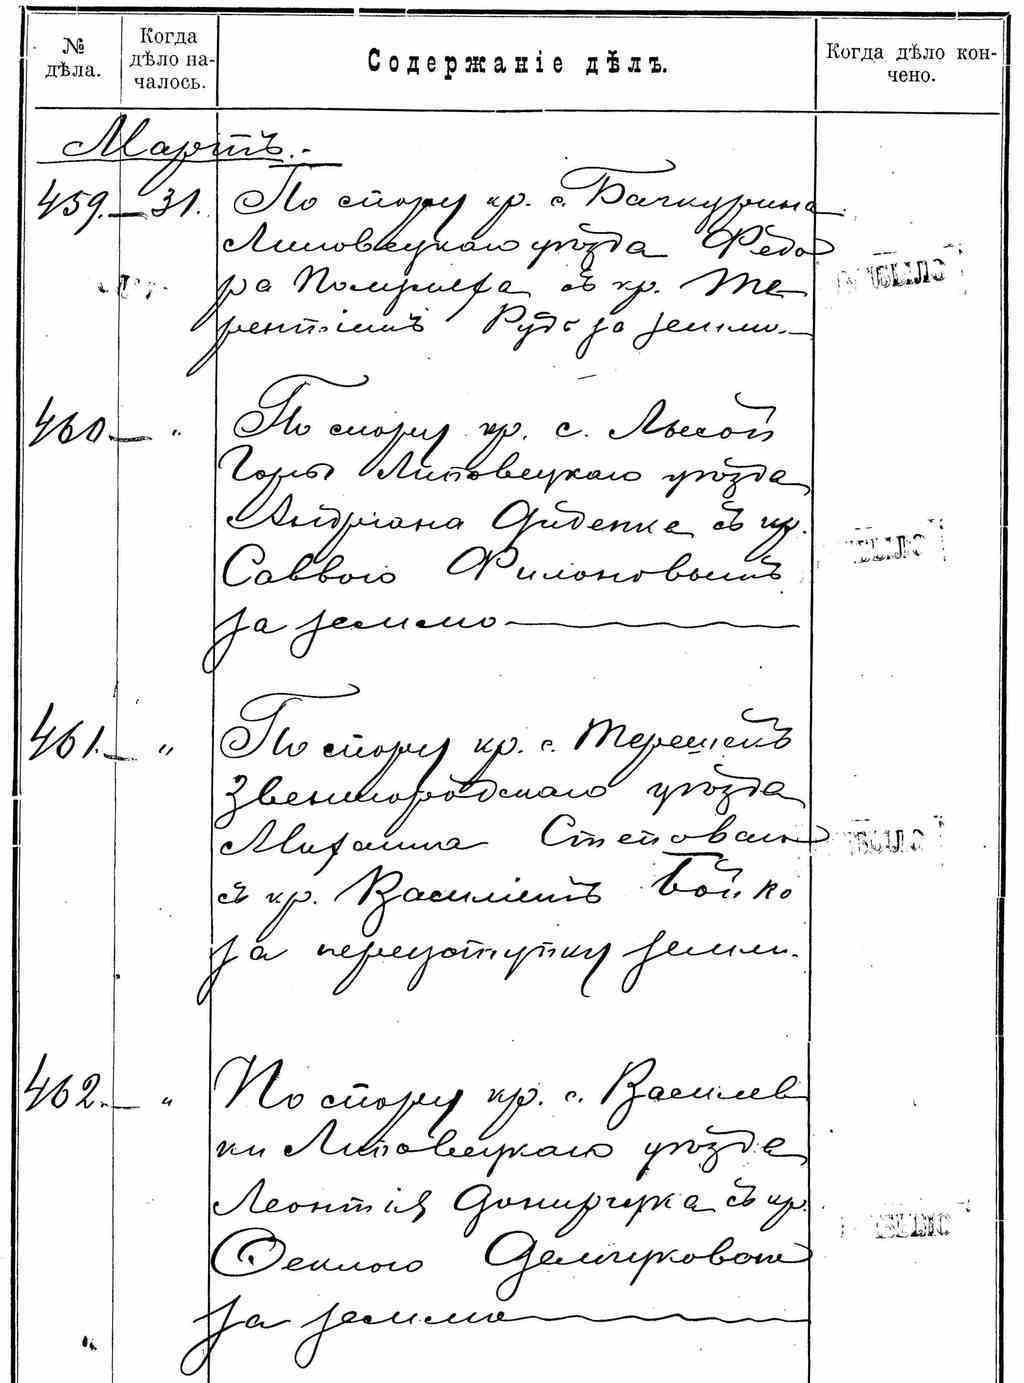 № дѣла.
Когда дѣло на-
чалось.
Содержаніе дѣлъ.
Когда дѣло кон-
чено.
Мартъ.-
459. — 31. По спору кр. с. Бачкурина
Липовецкаго уѣзда Федо
ра съ кр. Те
рентіемъ Рудь за землю.—
460 — " По спору кр. с. Лысой
Горы Липовецкаго уѣзда
Андріана Дйденка съ кр.
Саввою Филоновымъ
за землю —
461. — " По спору кр. с. Терешекъ
Звенигородскаго уѣзда
Михаила
съ кр. Василіемъ Бойко
за переуступку земли.
462. — " По спору кр. с. Василев
ки Липовецкаго уѣзда
Леонтія Донирчука съ кр.
Феклою Демчуковою
за землю —